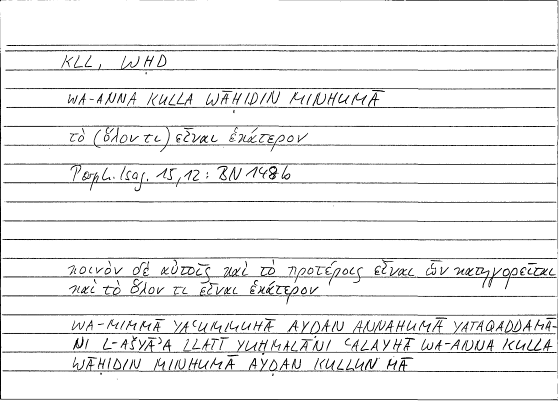 KLL, WḤD
WA-ANNA KULLA WĀḤIDIN MINHUMĀ
τὸ (ὅλον τι) εἶναι ἑκάτερον
Porph. Isag. 15,12 : BN 148b
κοινὸν δὲ αὐτοῖς καὶ τὸ προτέροις εἶναι ὧν κατηγορεῖται
καὶ τὸ ὅλον τι εἶναι ἑκάτερον
WA-MIMMĀ YAʿUMMUHĀ AYḌAN ANNAHUMĀ YATAQADDAMĀ-
NI L-AŠYĀʾA LLATĪ YUḤMALĀNI ʿALAYHĀ WA-ANNA KULLA
WĀḤIDIN MINHUMĀ AYḌAN KULLUN MĀ